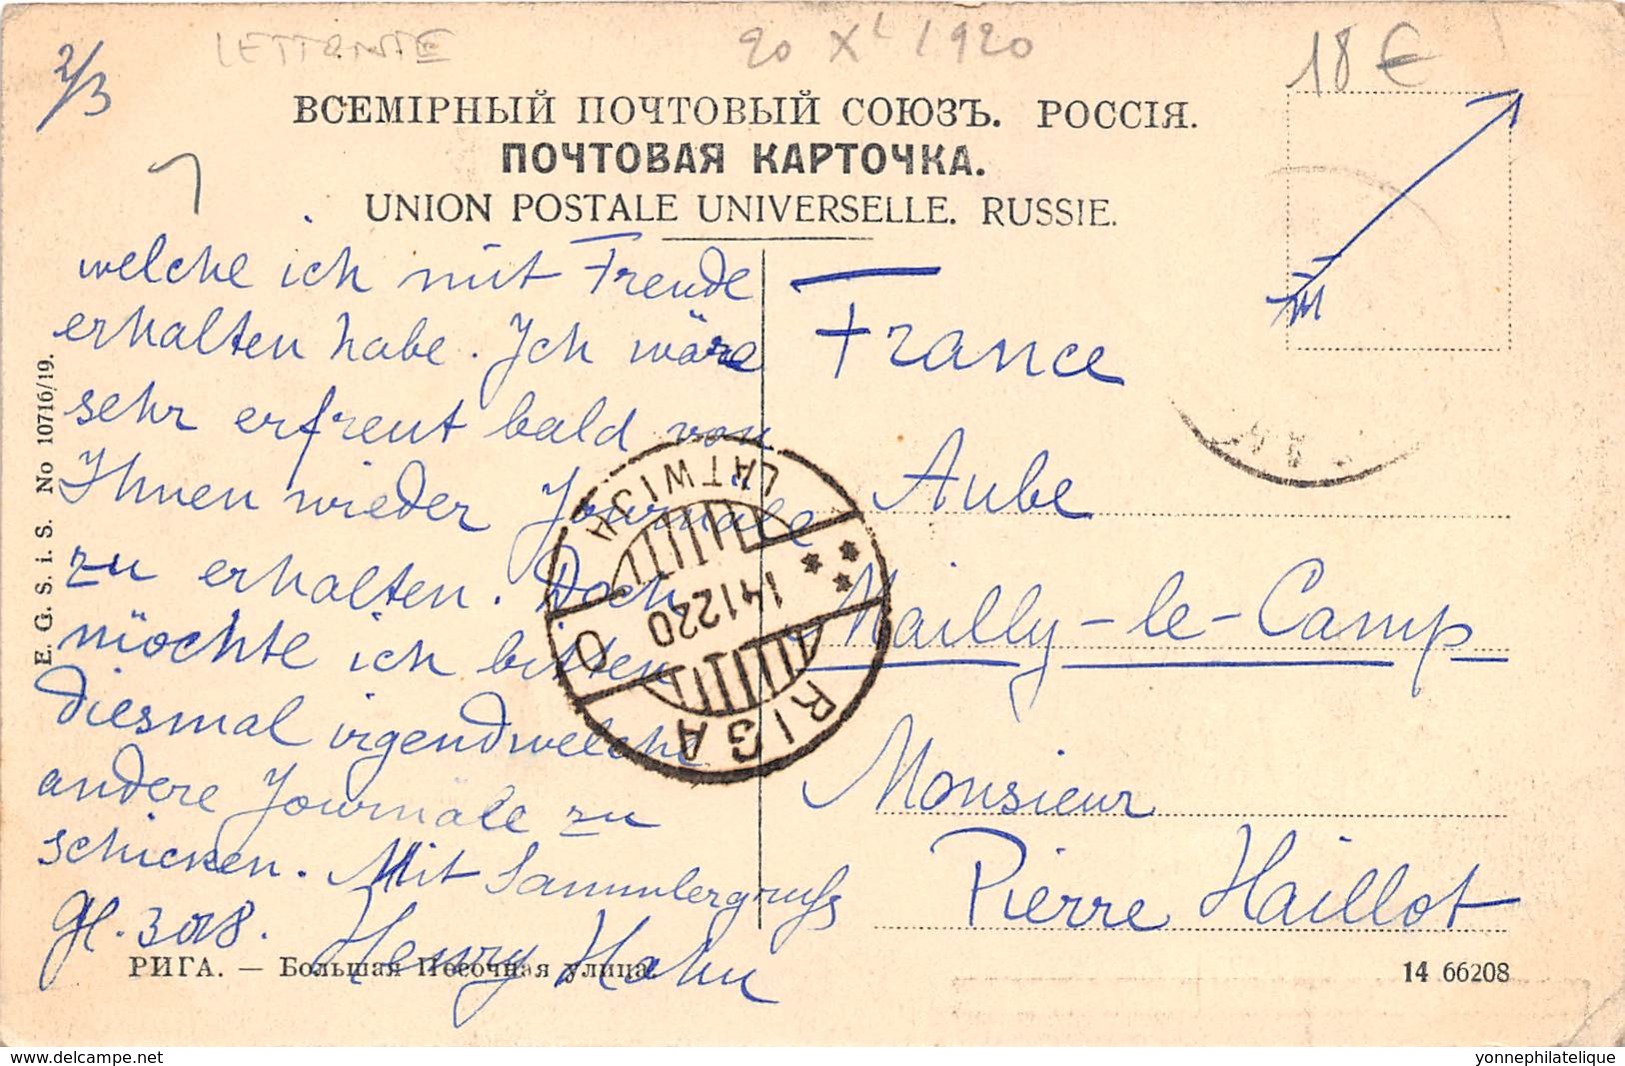 LETTONIE
20 XL 1920
18 €
2/3
ВСЕМІРНЫЙ ПОЧТОВЫЙ СОЮЗЪ. РОССІЯ.
ПОЧТОВАЯ КАРТОЧКА.
UNION POSTALE UNIVERSELLE. RUSSIE.
welche ich mit Freude
erhalten habe. Ich wäre
sehr erfreut bald von
Ihnen wieder Journale
zu erhalten. Doch
möchte ich bitten
diesmal irgendwelche
andere Journale zu
schicken. Mit Sammlergruß
gl. 3018.
Henry Hahn
France
Aube
Mailly-le-Camp
Monsieur
Pierre Haillot
LATWIJA
141220
RIGA
E. G. S. i. S. No 10716/19.
РИГА. — Большая Песочная улица.
14 66208
www.delcampe.net
yonnephilatelique